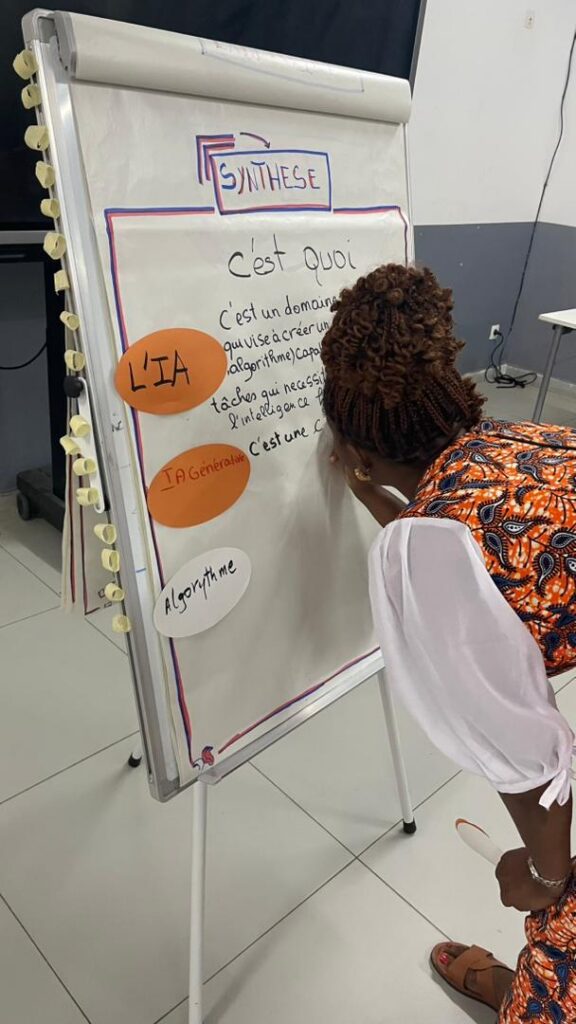 SYNTHESE
c'est QUOI
L'IA
C'est un domaine
qui vise à créer un
(algorithme) capa
tâches qui necessi
l'intelligence
IA Générative
C'est une
Algorythme